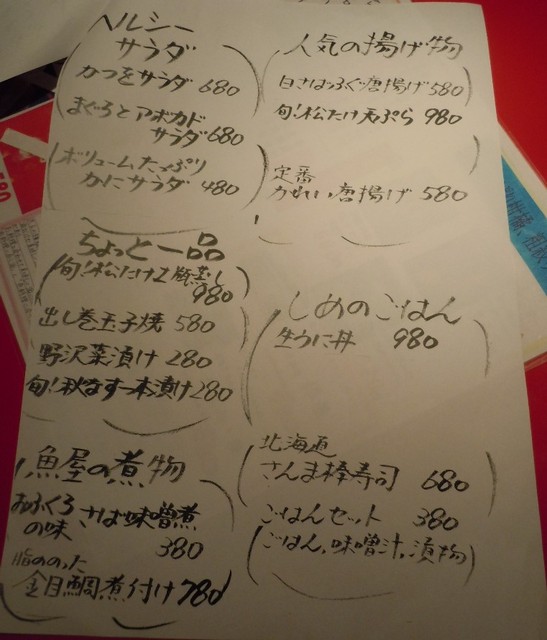 ヘルシー
サラダ
かつをサラダ 680
まぐろとアボカド
サラダ 680
ボリュームたっぷり
かにサラダ 480
ちょっと一品
旬!松たけ土瓶蒸し
980
出し巻玉子焼 580
野沢菜漬け 280
旬!秋なす一本漬け 280
魚屋の煮物
おふくろ
の味 さば味噌煮
380
脂ののった
金目鯛煮付け 780
人気の揚げ物
白さばふぐ唐揚げ 580
旬!松たけ天ぷら 980
定番
かれい唐揚げ 580
しめのごはん
生うに丼 980
北海道
さんま棒寿司 680
ごはんセット 380
(ごはん,味噌汁,漬物)